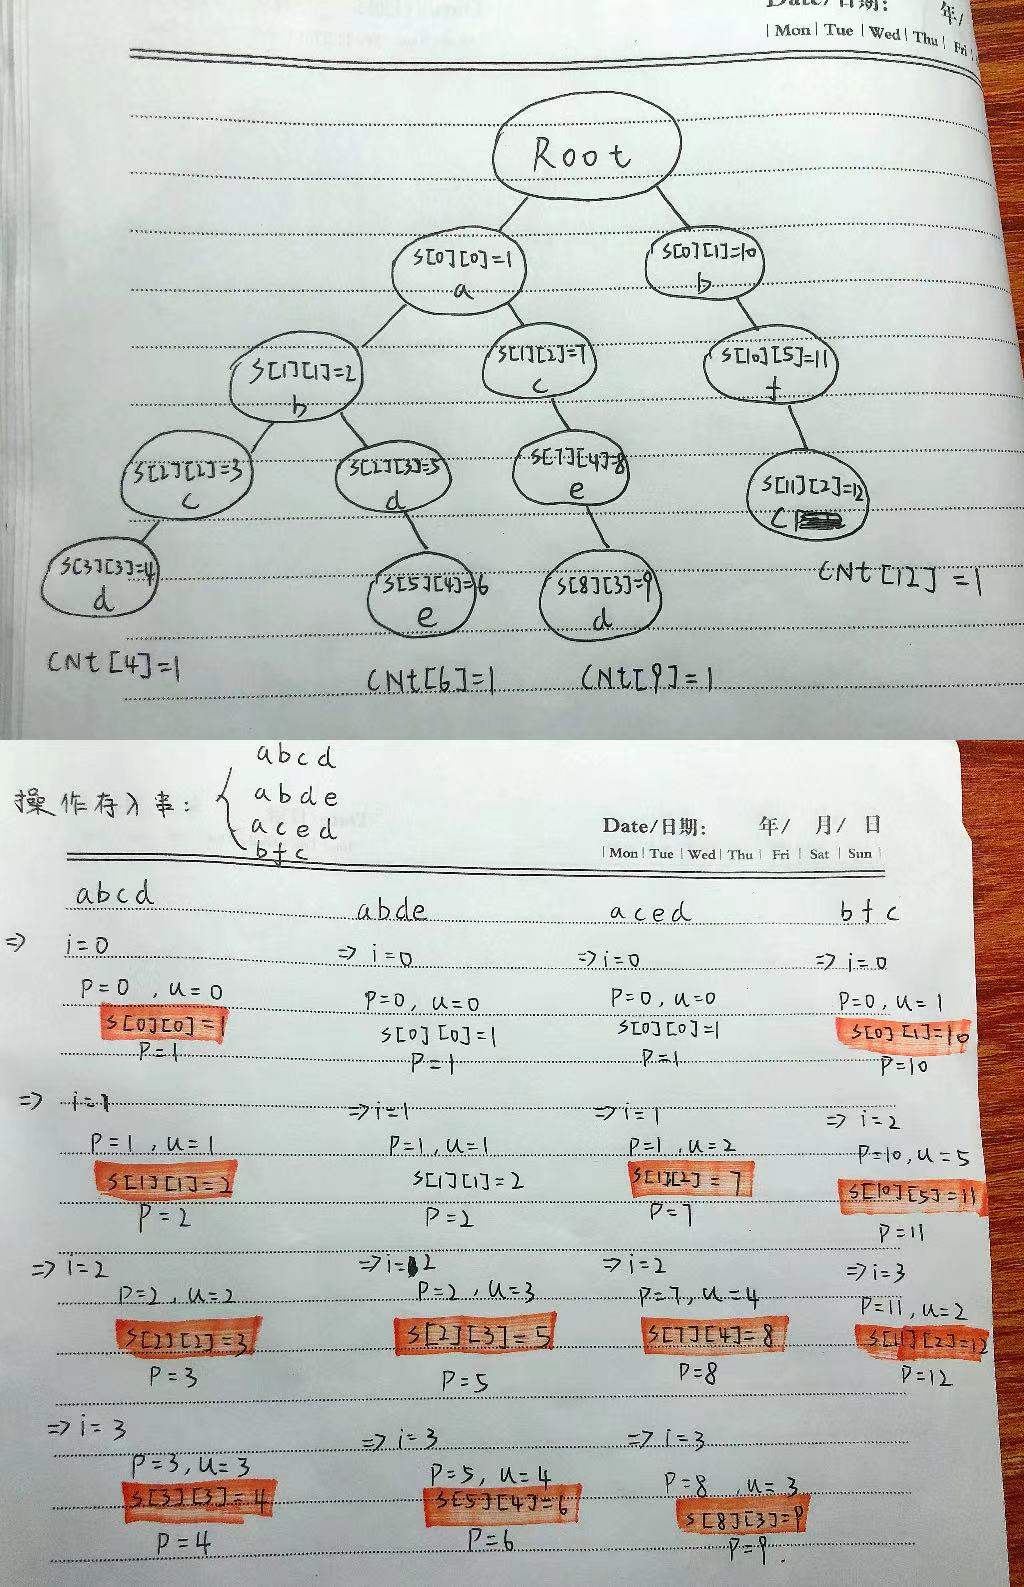 Date/日期: 年/
Mon Tue Wed Thu Fri
Root
S[0][0]=1
a
S[0][1]=10
b
S[1][1]=2
b
S[1][2]=7
c
S[10][5]=11
f
S[2][2]=3
c
S[2][3]=5
d
S[7][4]=8
e
S[11][2]=12
c
S[3][3]=4
d
S[5][4]=6
e
S[8][3]=9
d
CNt[12]=1
CNt[4]=1
CNt[6]=1
CNt[9]=1
操作存入串:
abcd
abde
aced
bfc
Date/日期: 年/ 月/ 日
Mon Tue Wed Thu Fri Sat Sun
abcd
=> i=0
P=0, u=0
S[0][0]=1
P=1
=> i=1
P=1, u=1
S[1][1]=2
P=2
=> i=2
P=2, u=2
S[2][2]=3
P=3
=> i=3
P=3, u=3
S[3][3]=4
P=4
abde
=> i=0
P=0, u=0
S[0][0]=1
P=1
=> i=1
P=1, u=1
S[1][1]=2
P=2
=> i=2
P=2, u=3
S[2][3]=5
P=5
=> i=3
P=5, u=4
S[5][4]=6
P=6
aced
=> i=0
P=0, u=0
S[0][0]=1
P=1
=> i=1
P=1, u=2
S[1][2]=7
P=7
=> i=2
P=7, u=4
S[7][4]=8
P=8
=> i=3
P=8, u=3
S[8][3]=9
P=9.
bfc
=> i=0
P=0, u=1
S[0][1]=10
P=10
=> i=2
P=10, u=5
S[10][5]=11
P=11
=> i=3
P=11, u=2
S[11][2]=12
P=12